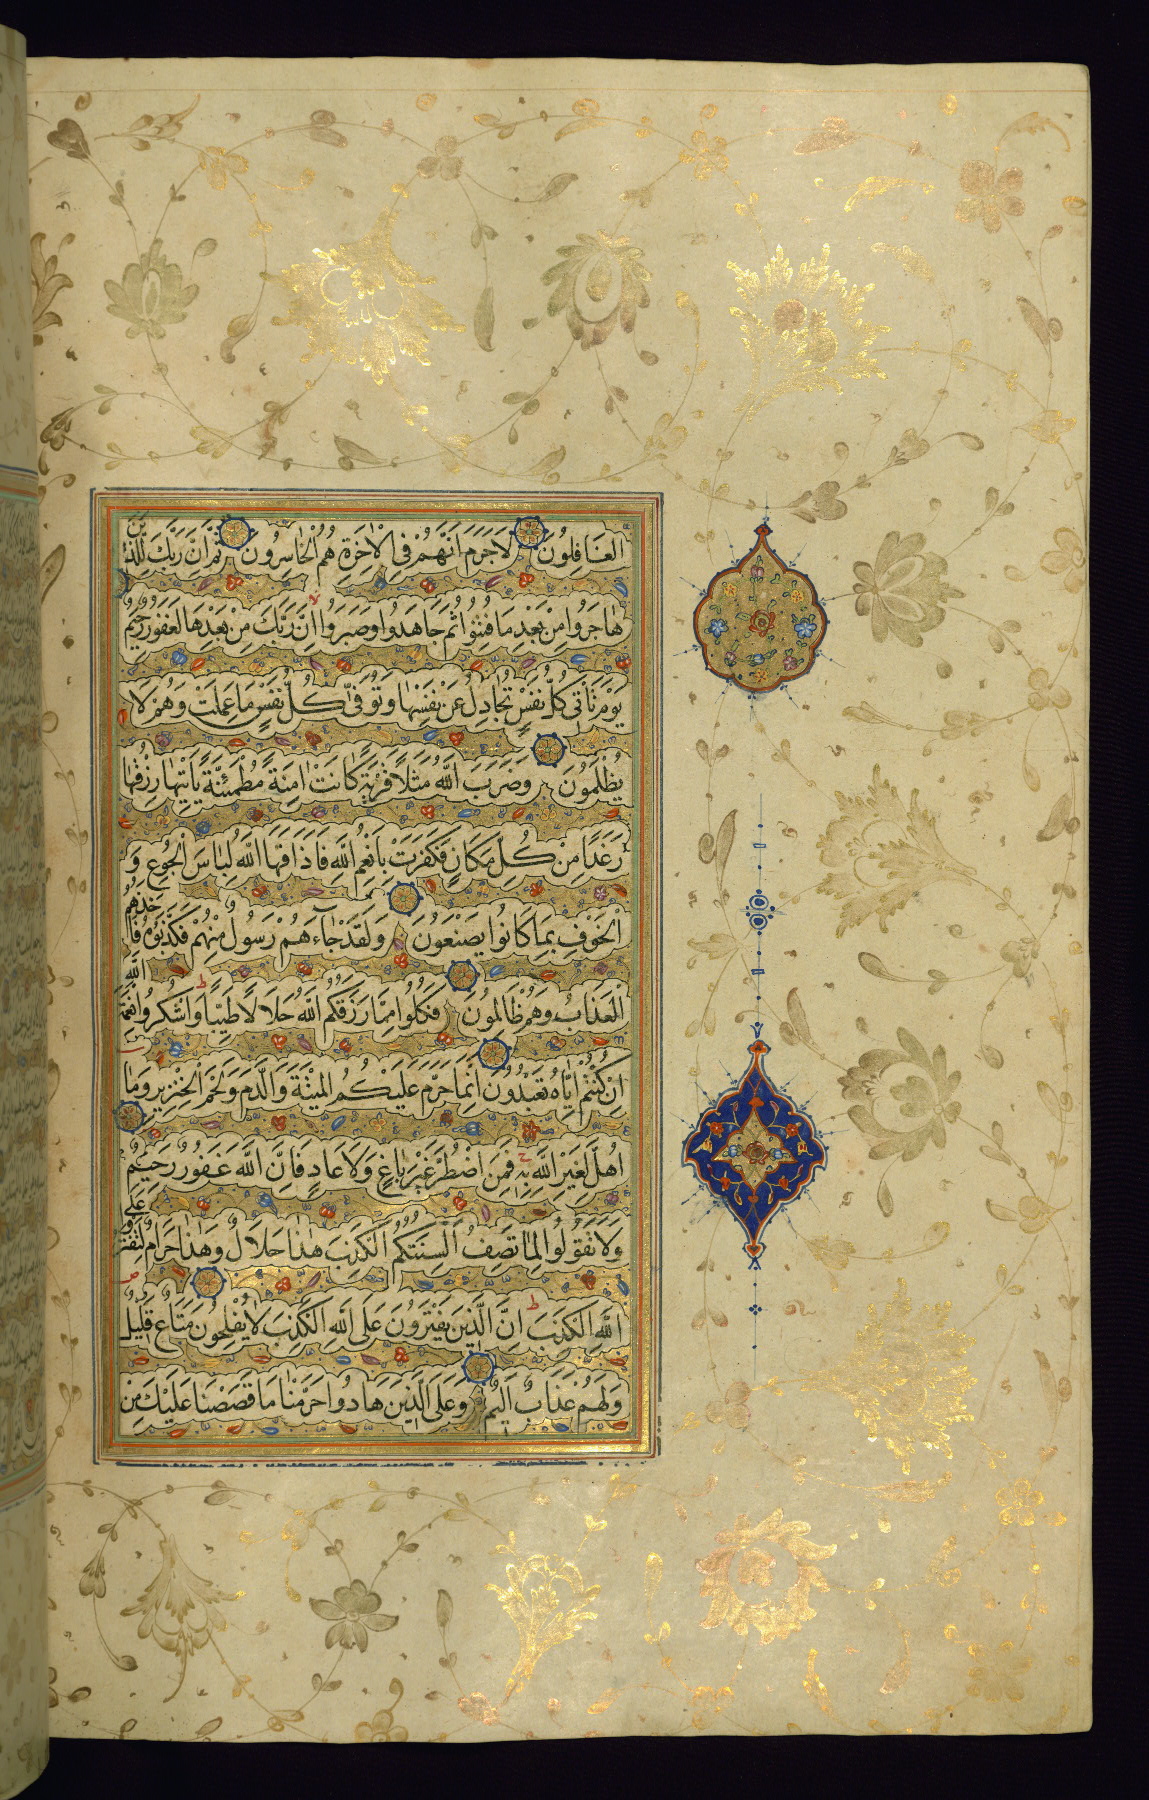 الغَافِلُونَ لَاجَرَمَ اَنَّهُمْ فِي الْاٰخِرَةِ هُمُ الْخَاسِرُونَ ثُمَّ اِنَّ رَبَّكَ لِلَّذِينَ
هَاجَرُوا مِنْ بَعْدِ مَا فُتِنُوا ثُمَّ جَاهَدُوا وَصَبَرُوا اِنَّ رَبَّكَ مِنْ بَعْدِهَا لَغَفُورٌ رَحِيمٌ
يَوْمَ تَاْتِي كُلُّ نَفْسٍ تُجَادِلُ عَنْ نَفْسِهَا وَتُوَفّٰى كُلُّ نَفْسٍ مَا عَمِلَتْ وَهُمْ لَا
يُظْلَمُونَ وَضَرَبَ اللّٰهُ مَثَلًا قَرْيَةً كَانَتْ اٰمِنَةً مُطْمَئِنَّةً يَاْتِيهَا رِزْقُهَا
رَغَدًا مِنْ كُلِّ مَكَانٍ فَكَفَرَتْ بِاَنْعُمِ اللّٰهِ فَاَذَاقَهَا اللّٰهُ لِبَاسَ الْجُوعِ وَ
الْخَوْفِ بِمَا كَانُوا يَصْنَعُونَ وَلَقَدْ جَاۤءَهُمْ رَسُولٌ مِنْهُمْ فَكَذَّبُوهُ فَاَخَذَهُمُ
الْعَذَابُ وَهُمْ ظَالِمُونَ فَكُلُوا مِمَّا رَزَقَكُمُ اللّٰهُ حَلَالًا طَيِّبًا وَاشْكُرُوا نِعْمَةَ اللّٰهِ
اِنْ كُنْتُمْ اِيَّاهُ تَعْبُدُونَ اِنَّمَا حَرَّمَ عَلَيْكُمُ الْمَيْتَةَ وَالدَّمَ وَلَحْمَ الْخِنْزِيرِ وَمَا
اُهِلَّ لِغَيْرِ اللّٰهِ بِهٖ فَمَنِ اضْطُرَّ غَيْرَ بَاغٍ وَلَا عَادٍ فَاِنَّ اللّٰهَ غَفُورٌ رَحِيمٌ
وَلَا تَقُولُوا لِمَا تَصِفُ اَلْسِنَتُكُمُ الْكَذِبَ هٰذَا حَلَالٌ وَهٰذَا حَرَامٌ لِتَفْتَرُوا عَلَى
اللّٰهِ الْكَذِبَ اِنَّ الَّذِينَ يَفْتَرُونَ عَلَى اللّٰهِ الْكَذِبَ لَا يُفْلِحُونَ مَتَاعٌ قَلِيلٌ
وَلَهُمْ عَذَابٌ اَلِيمٌ وَعَلَى الَّذِينَ هَادُوا حَرَّمْنَا مَا قَصَصْنَا عَلَيْكَ مِنْ